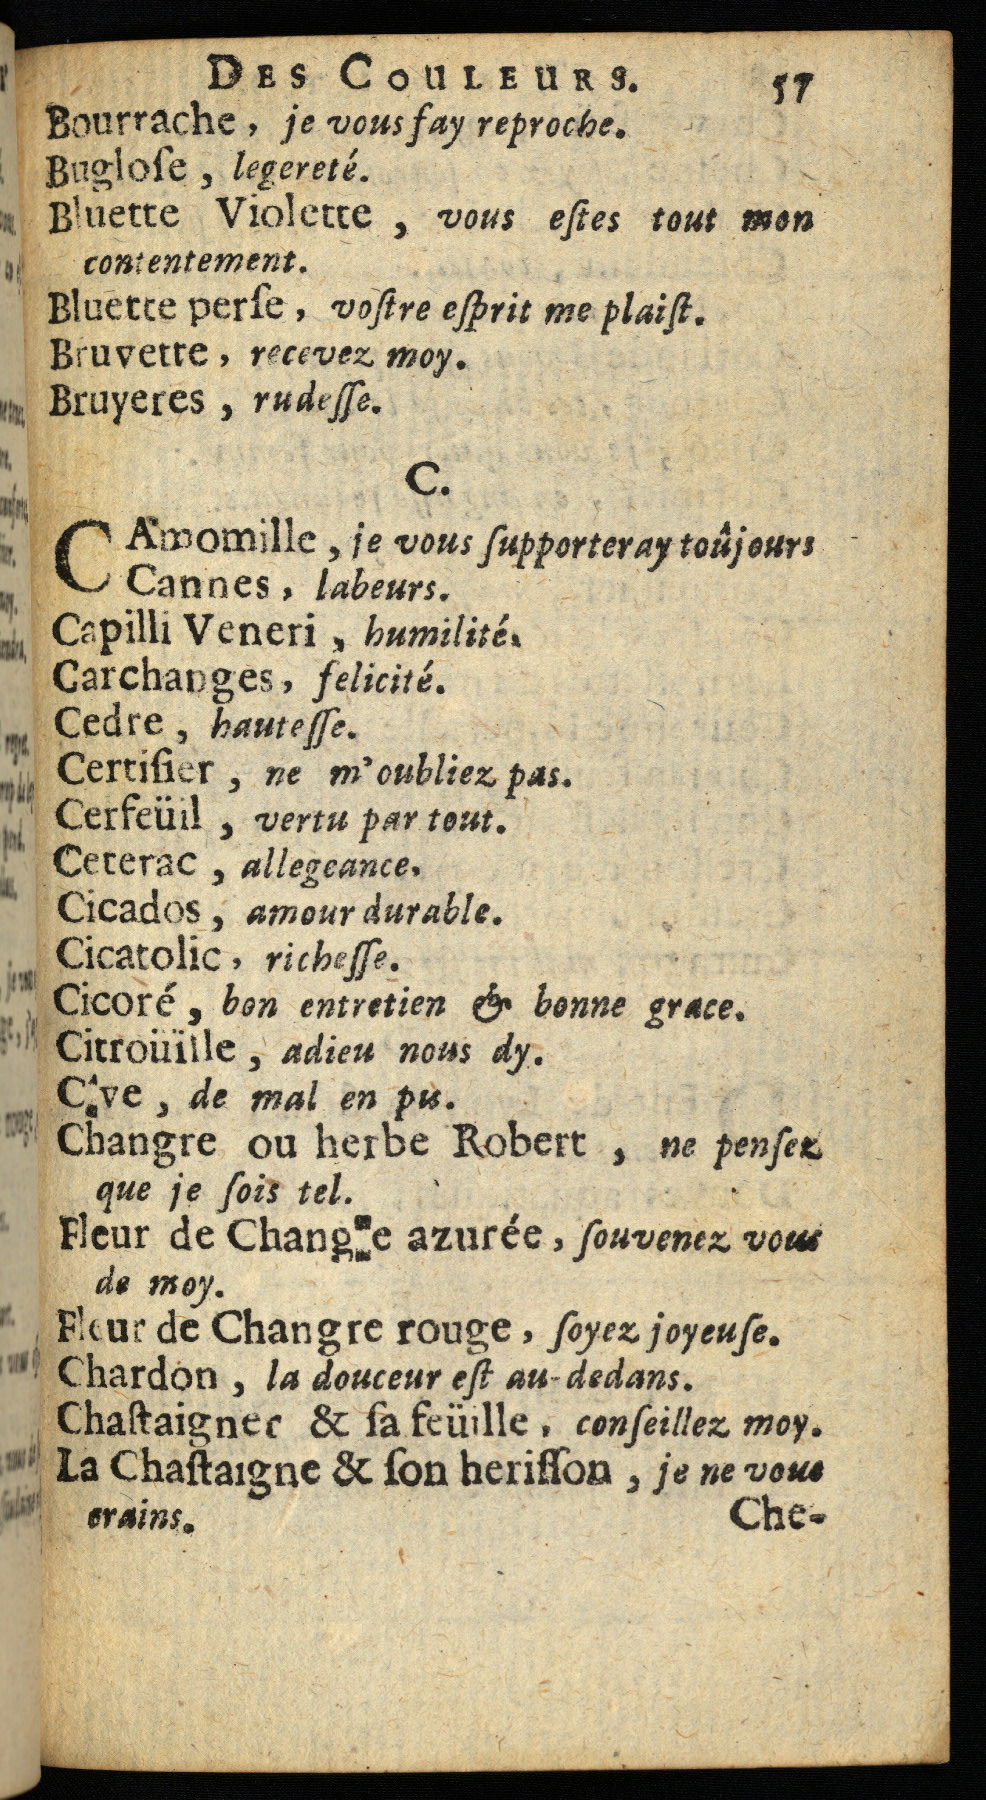 DES COULEURS. 57
Bourrache, je vous fay reproche.
Bugloſe, legereté.
Bluette Violette, vous eſtes tout mon
contentement.
Bluette perſe, voſtre eſprit me plaiſt.
Bruvette, recevez moy.
Bruyeres, rudeſſe.
C.
CAmomille, je vous ſupporteray toûjours
Cannes, labeurs.
Capilli Veneri, humilité.
Carchanges, felicité.
Cedre, hauteſſe.
Certifier, ne m'oubliez pas.
Cerfeüil, vertu par tout.
Ceterac, allegeance.
Cicados, amour durable.
Cicatolic, richeſſe.
Cicoré, bon entretien & bonne grace.
Citroüille, adieu nous dy.
Cive, de mal en pis.
Changre ou herbe Robert, ne penſez
que je ſois tel.
Fleur de Changre azurée, ſouvenez vous
de moy.
Fleur de Changre rouge, ſoyez joyeuſe.
Chardon, la douceur eſt au-dedans.
Chaſtaigner & ſa feüille, conſeillez moy.
La Chaſtaigne & ſon heriſſon, je ne vous
crains.
Che-